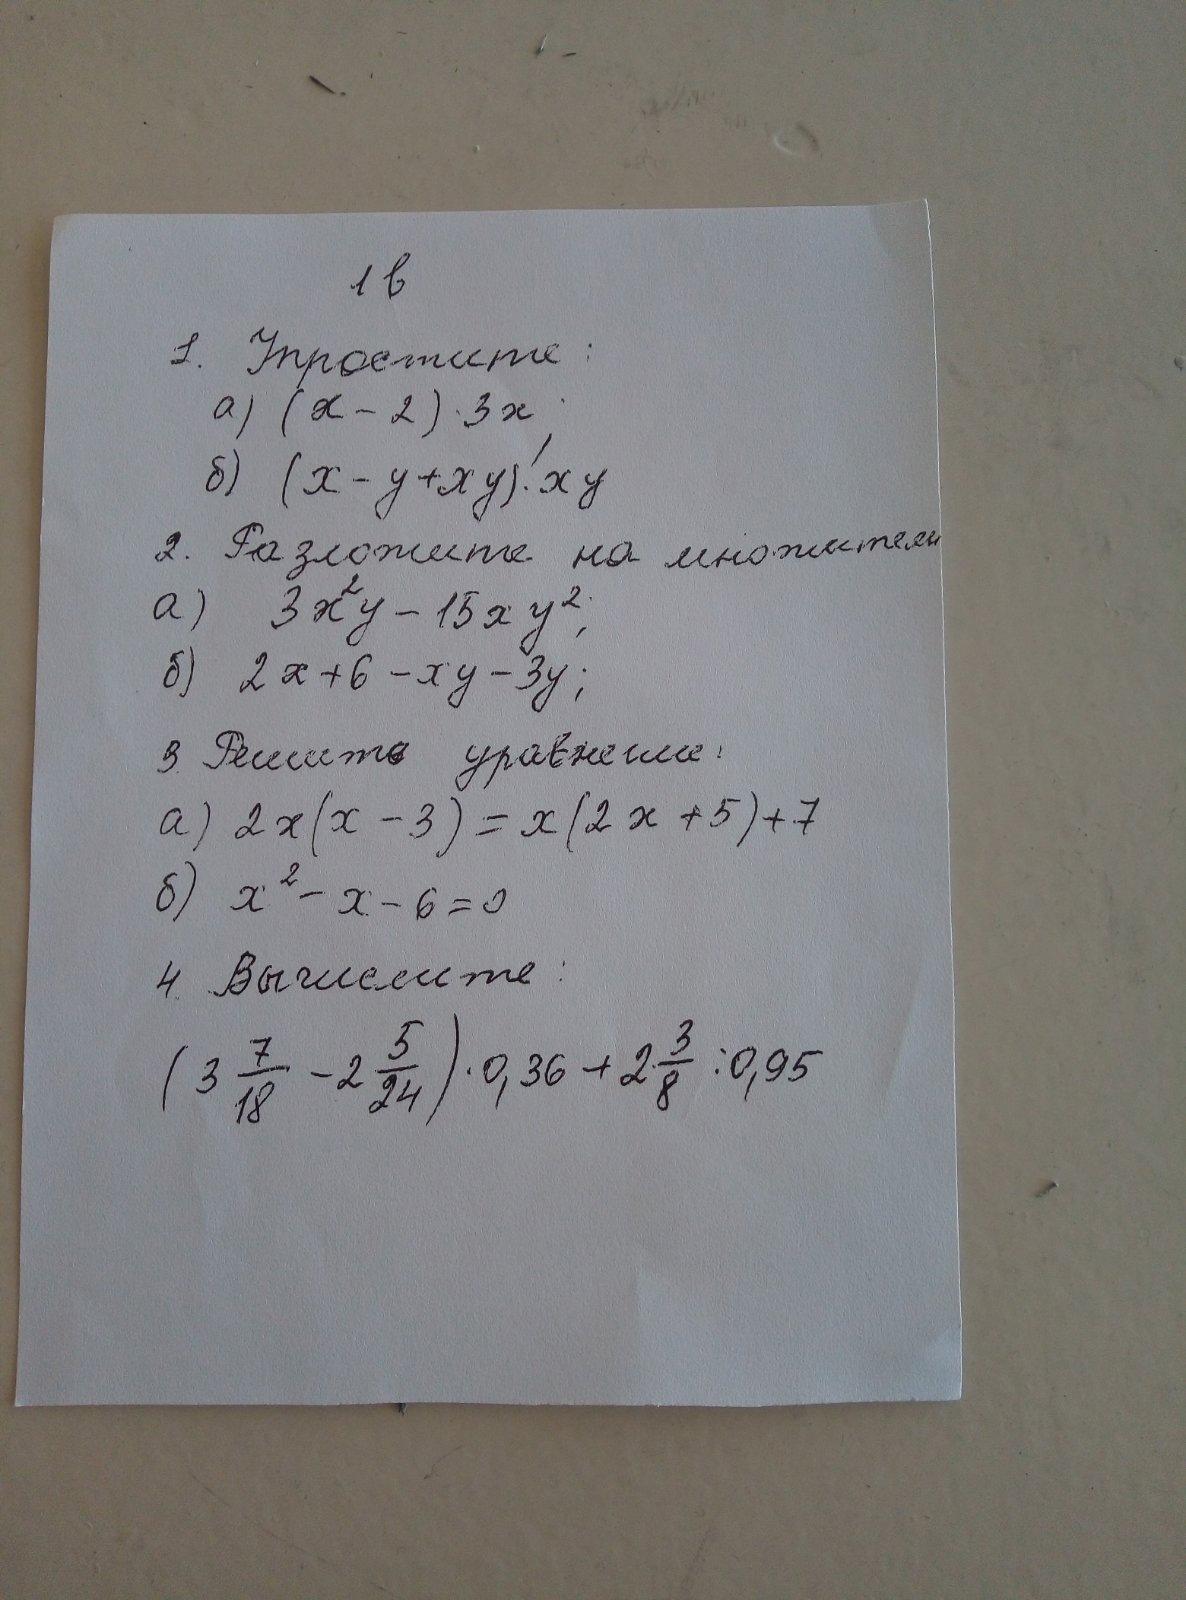 1 в
1. Упростите:
а) (x - 2) · 3x;
б) (x - y + xy) · xy
2. Разложите на множители
а) 3x²y - 15xy²;
б) 2x + 6 - xy - 3y;
3. Решить уравнение:
а) 2x(x - 3) = x(2x + 5) + 7
б) x² - x - 6 = 0
4. Вычислите:
(3 7/18 - 2 5/24) · 0,36 + 2 3/8 : 0,95